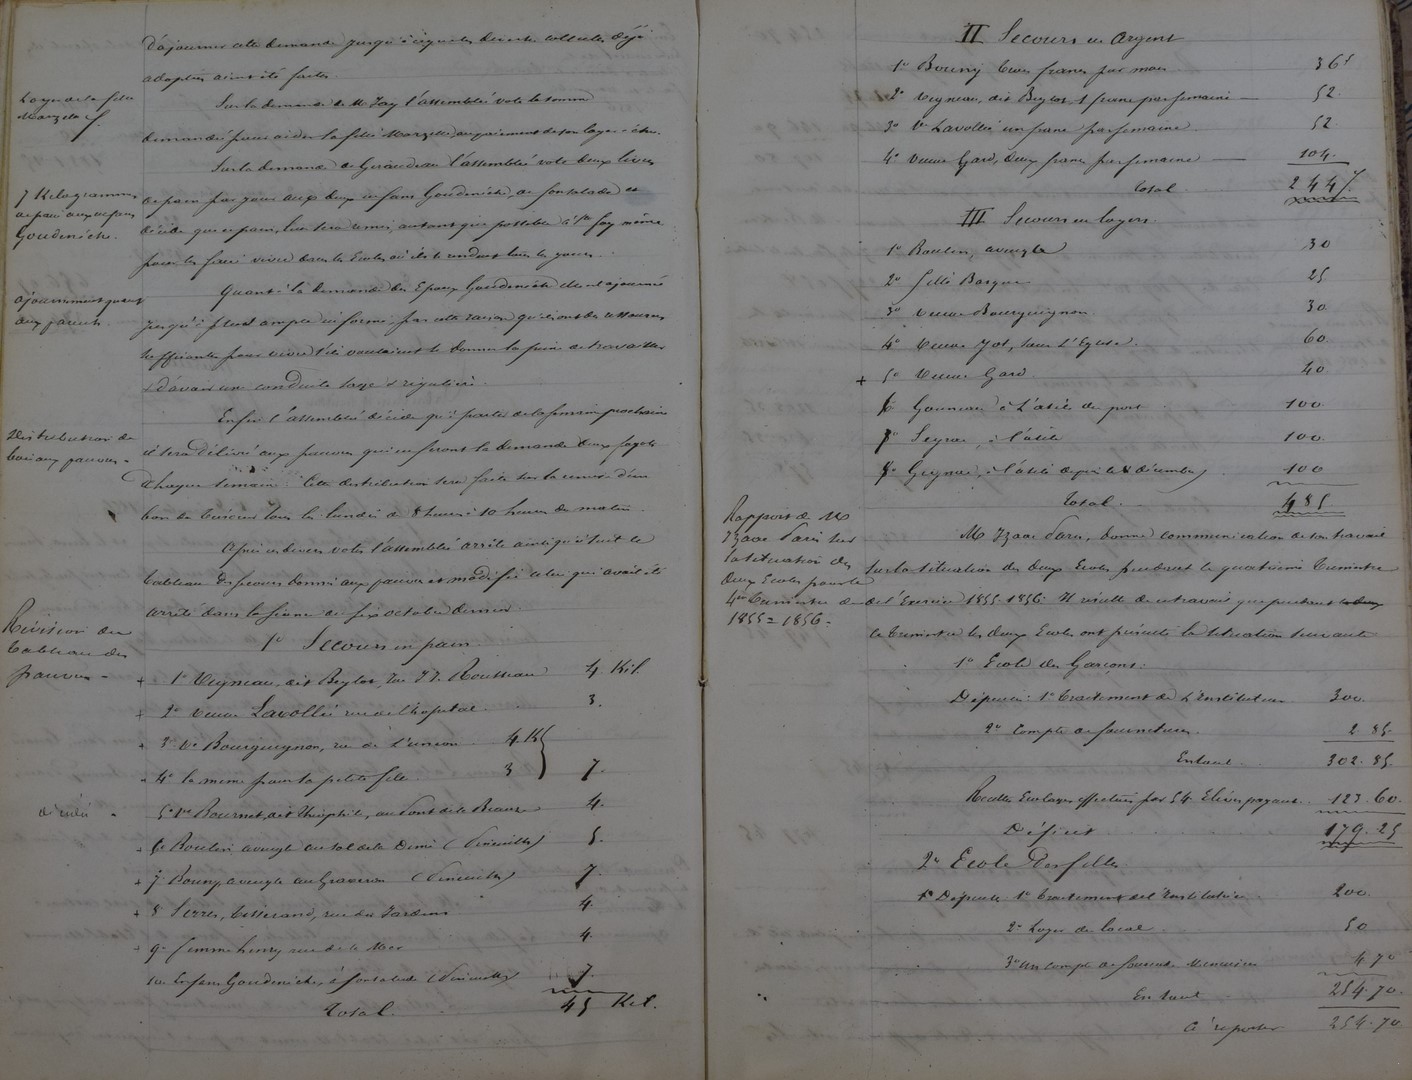 d'ajourner cette demande jusqu'à ce que les diverses collectes déjà
adoptées aient été faites.
Loyer de la fille
Marzelle
Sur la demande de Mr Jay l'assemblée vote la somme
demandée pour aider la fille Marzelle au paiement de son loyer
Sur la demande de Geraudeau l'assemblée vote deux livres
7 Kilogrammes
de pain aux enfans
Goudenèche.
de pain par jour aux deux enfans Goudenèche, de fontalade et
décide que ce pain, leur sera remis, autant que possible à Ste foy même
pour les faire venir dans les Ecoles où ils se rendront tous les jours.
ajournement quant
aux parents.
Quant à la demande des Epoux Goudenèche elle est ajournée
jusqu'à plus ample informé, par cette raison qu'ils ont des ressources
suffisantes pour vivre s'ils voulaient se donner la peine de travailler
& d'avoir une conduite sage & régulière.
Distribution de
bois aux pauvres.
Enfin l'assemblée décide qu'à partir de la semaine prochaine
il sera délivré aux pauvres qui en feront la demande deux fagots
chaque semaine. Cette distribution sera faite sur la remise d'un
bon du Trésorier tous les lundis de 8 heures à 10 heures du matin.
Après ces divers votes l'assemblée arrête ainsi qu'il suit le
tableau des secours donnés aux pauvres et modifie celui qui avait été
arrêté dans la séance du six octobre dernier.
Révision du
tableau des
pauvres
1º Secours en pain.
+ 1º Veyneau, dit Beylot, rue J. J. Rousseau 4. Kil.
+ 2º Veuve Lavollée rue de l'hopital 3.
+ 3º Ve Bourguignon, rue de l'union 4 K
4º la même pour la petite fille 3 7.
décédé
5º Ve Bournet, dit Théophile, au Pont de la Beauze 4.
6º Boulin aveugle au sol de la Dime (Pineuilh) 5.
+ 7 Bouny aveugle au Graveron (Pineuilh) 7.
+ 8 Serres, tisserand, rue des Jardins 4.
9º femme henry rue de la Mer 4.
10. Enfans Goudenèche, à fontalade (Pineuilh) 7.
Total. 45 Kil.
II Secours en Argent
1º Bouny trois francs par mois 36f
2º Veyneau, dit Beylot 1 franc par semaine 52.
3º Ve Lavollée un franc par semaine 52
4º Veuve Gard, deux francs par semaine 104.
Total 244f.
III Secours en loyers.
1º Boulin, aveugle 30
2º fille Barque 25
3º Veuve Bourguignon 30
4º Veuve Jot, sous l'Eglise. 60.
+ 5º Veuve Gard. 40.
6 Gouneau à l'asile de port 100
7º Seyrac, à l'asile 100.
8º Guignac, à l'asile depuis le 8 décembre 100
Total. 485
Rapport de Mr
Izaac Paris sur
la situation des
deux Ecoles pour le
4me trimestre de
1855=1856.
Mr Izaac Paris, donne communication de son travail
sur la situation des deux Ecoles pendant le quatrième Trimestre
de l'Exercice 1855-1856. Il résulte de ce travail que pendant
le Trimestre les deux Ecoles ont présenté la situation suivante
1º Ecole des Garçons:
Dépenses: 1º traitement de l'Instituteur 300.
2º Compte de fournitures. 2.85.
En tout 302.85.
Recettes Ecolages effectués par 54 Elèves payants 123.60.
Déficit 179.25
2º Ecole des filles.
Dépenses 1º traitement de l'Institutrice 200.
2º Loyer du local 50
3º un compte de fournit. 4.70
En tout 254.70.
à reporter 254.70